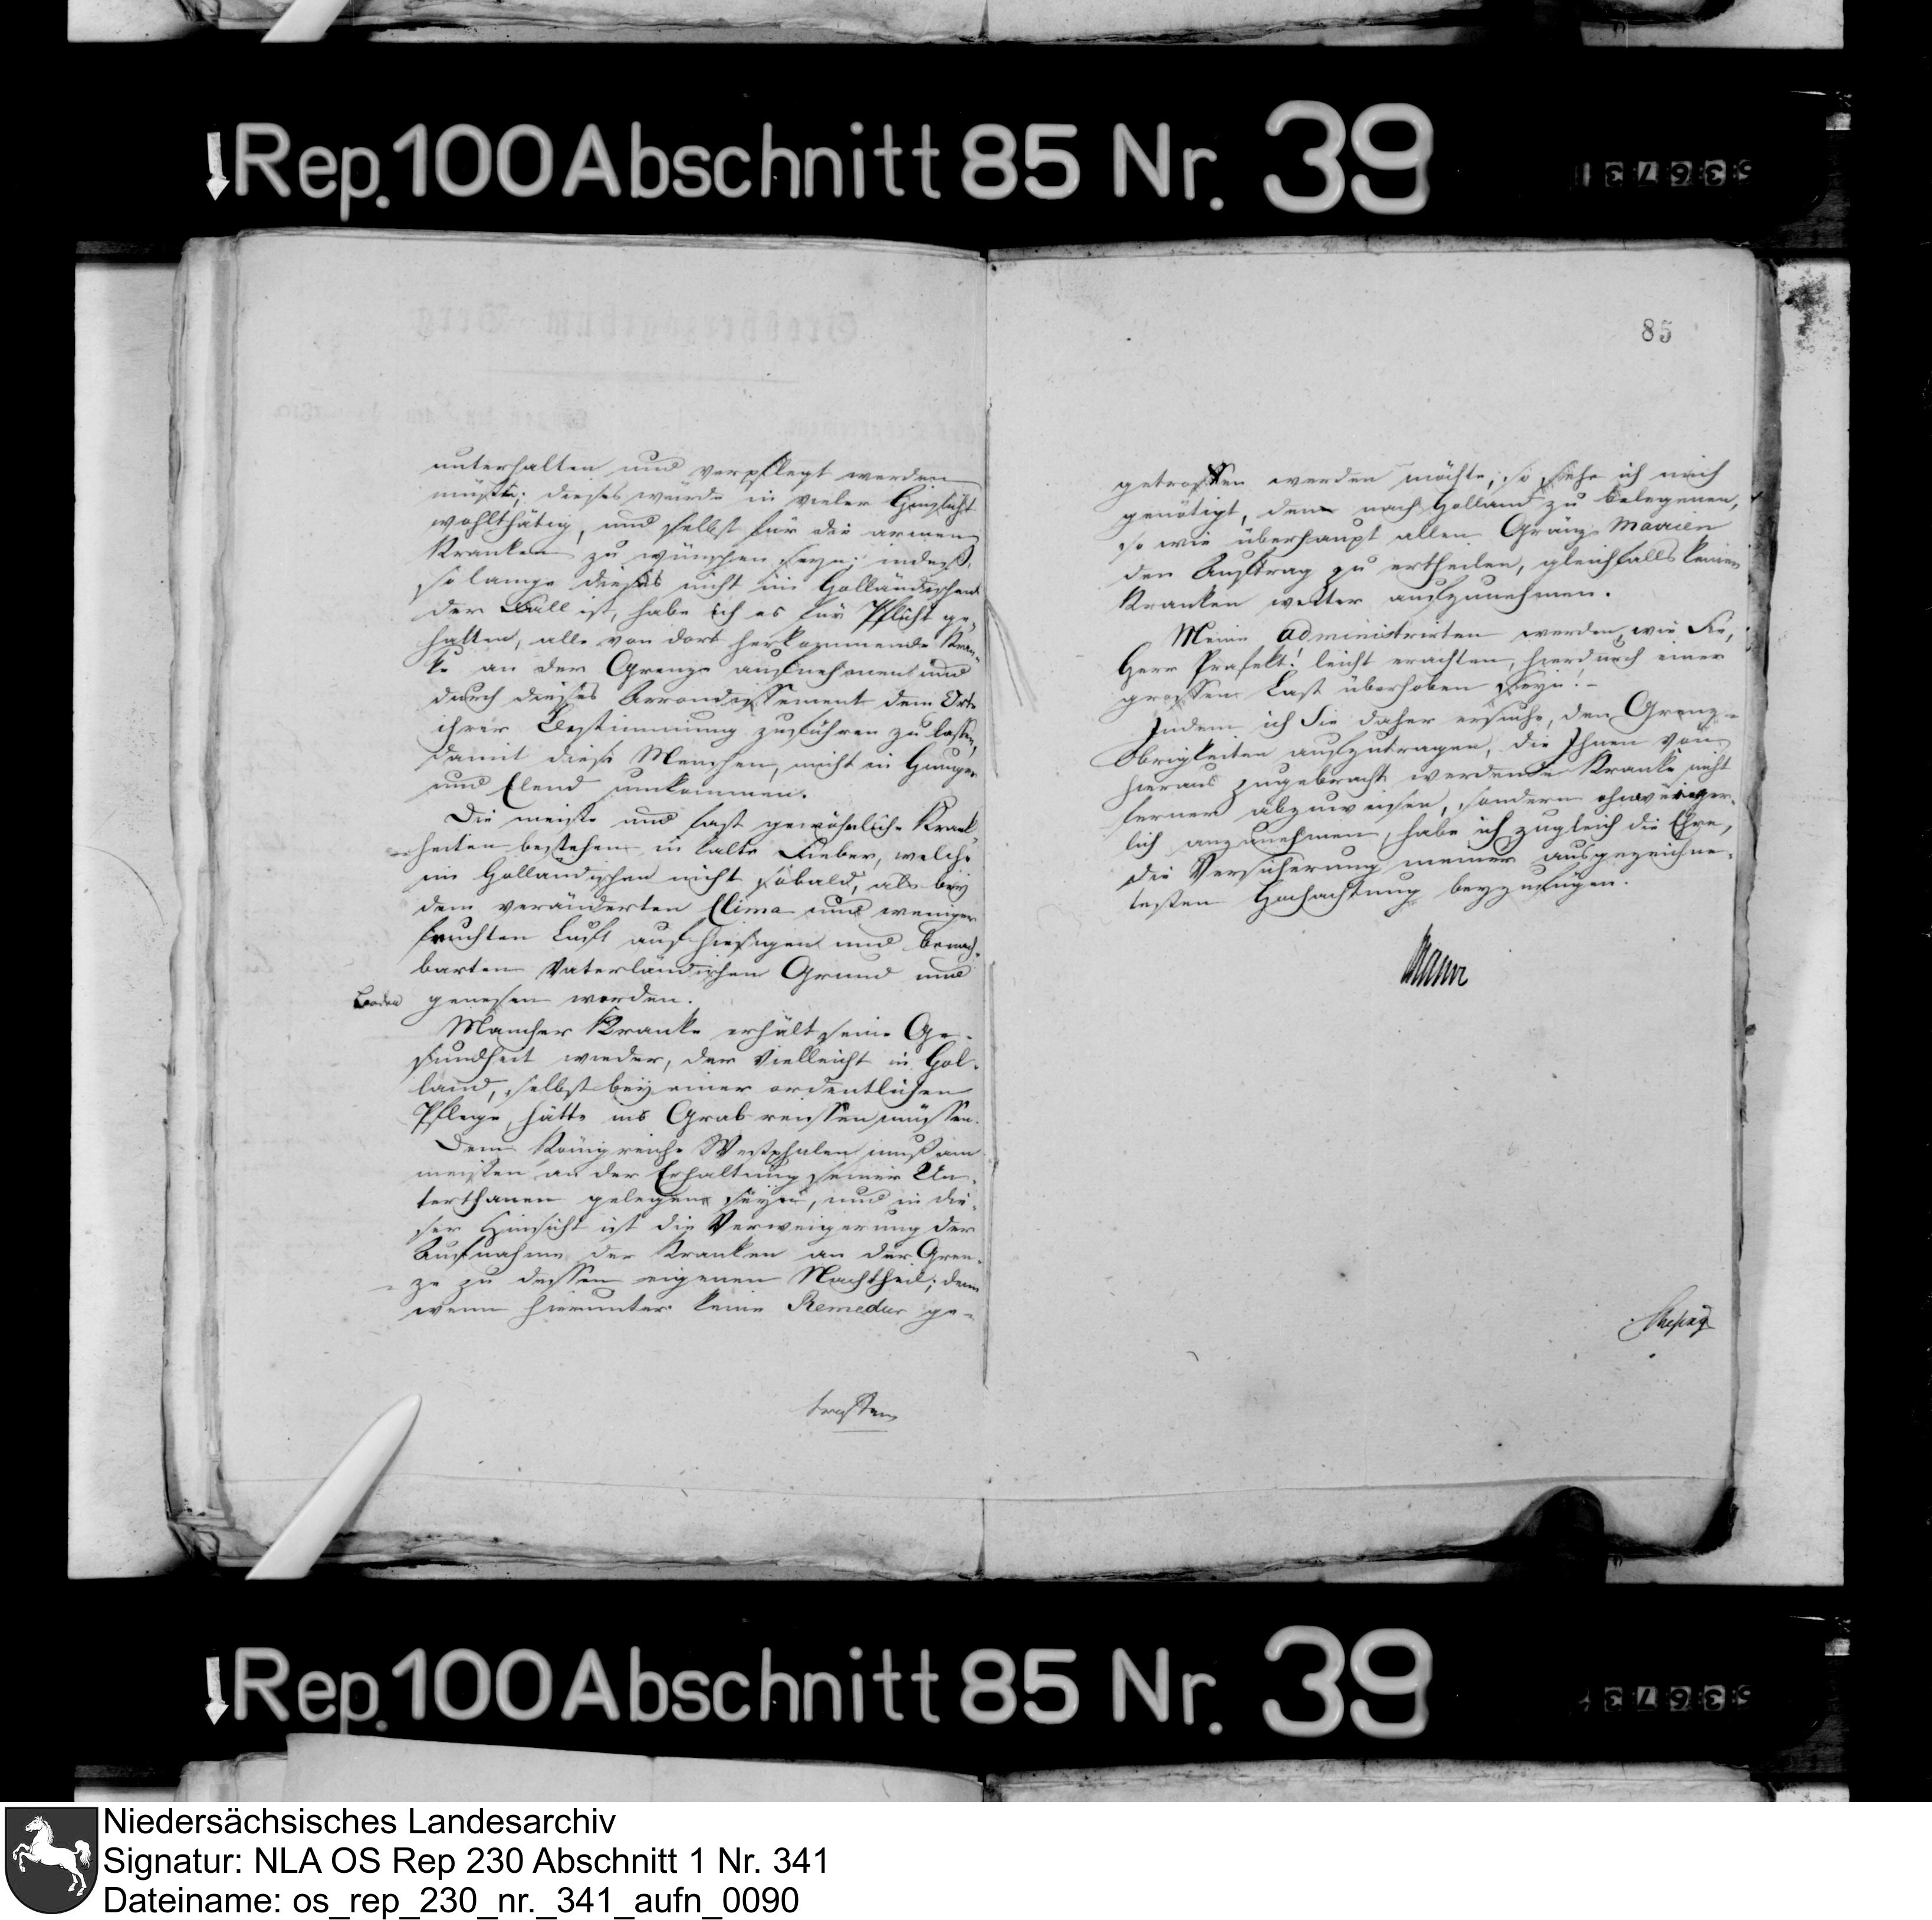 Rep. 100 Abschnitt 85 Nr. 39
85
unterhalten und verpflegt werden
müßte; dieses würde in vieler Hinsicht
wohlthätig, und selbst für die armen
Kranken zu wünschen seyn; indeß,
so lange dieses nicht im Holländischen
der Fall ist, habe ich es für Pflicht ge-
halten, alle von dort herkommende Kran-
ke an der Grenze aufnehmen und
durch dieses Arrondissement dem Orte
ihrer Bestimmung zuführen zu lassen,
damit diese Menschen, nicht in Hunger
und Elend umkommen.
Die meiste und fast gewöhnliche Krank-
heiten bestehen in kalte Fieber, welche
im Holländischen nicht sobald, als bey
dem veränderten Clima und weniger
feuchten Luft auf hiesigen und benach-
barten Vaterländischen Grund und
Boden genesen werden.
Mancher Kranke erhält seine Ge-
sundheit wieder, der vielleicht in Hol-
land, selbst bey einer ordentlichen
Pflege, hätte ins Grab reissen müssen.
Dem Königreiche Westphalen muß am
meisten an der Erhaltung seiner Un-
terthanen gelegen seyn, und in die-
ser Hinsicht ist die Verweigerung der
Aufnahme der Kranken an der Gren-
ze zu dessen eigenen Nachtheil; denn
wenn hierunter keine Remedur ge-
troffen
getroffen werden möchte, so sehe ich mich
genötigt, den nach Holland zu belegenen,
so wie überhaupt allen Gränz Mairien
den Auftrag zu ertheilen, gleichfalls keinen
Kranken weiter aufzunehmen.
Meine Administrirten werden, wie Sie,
Herr Präfekt! leicht erachten, hierdurch einer
grossen Last überhoben seyn! –
Indem ich Sie daher ersuche, den Grenz-
Obrigkeiten aufzutragen, die Ihnen von
hieraus zugebracht werdende Kranke nicht
ferner abzuweisen, sondern ohnweiger-
lich anzunehmen, habe ich zugleich die Ehre,
die Versicherung meiner ausgezeichne-
testen Hochachtung beyzufügen.
Mann
Rep. 100 Abschnitt 85 Nr. 39
Niedersächsisches Landesarchiv
Signatur: NLA OS Rep 230 Abschnitt 1 Nr. 341
Dateiname: os_rep_230_nr._341_aufn_0090